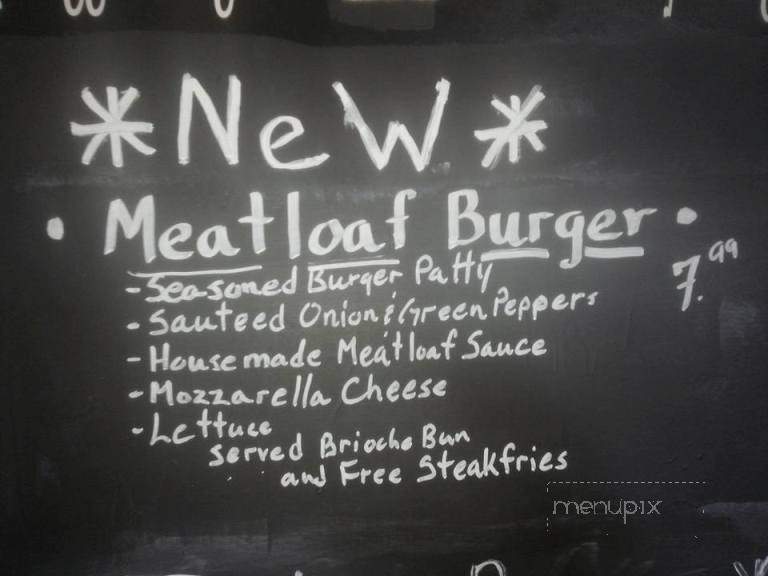 *New*
• Meatloaf Burger •
- Seasoned Burger Patty
7.99
- Sauteed Onion & Green Peppers
- Housemade Meatloaf Sauce
- Mozzarella Cheese
- Lettuce
served Brioche Bun
and Free Steakfries
menupix